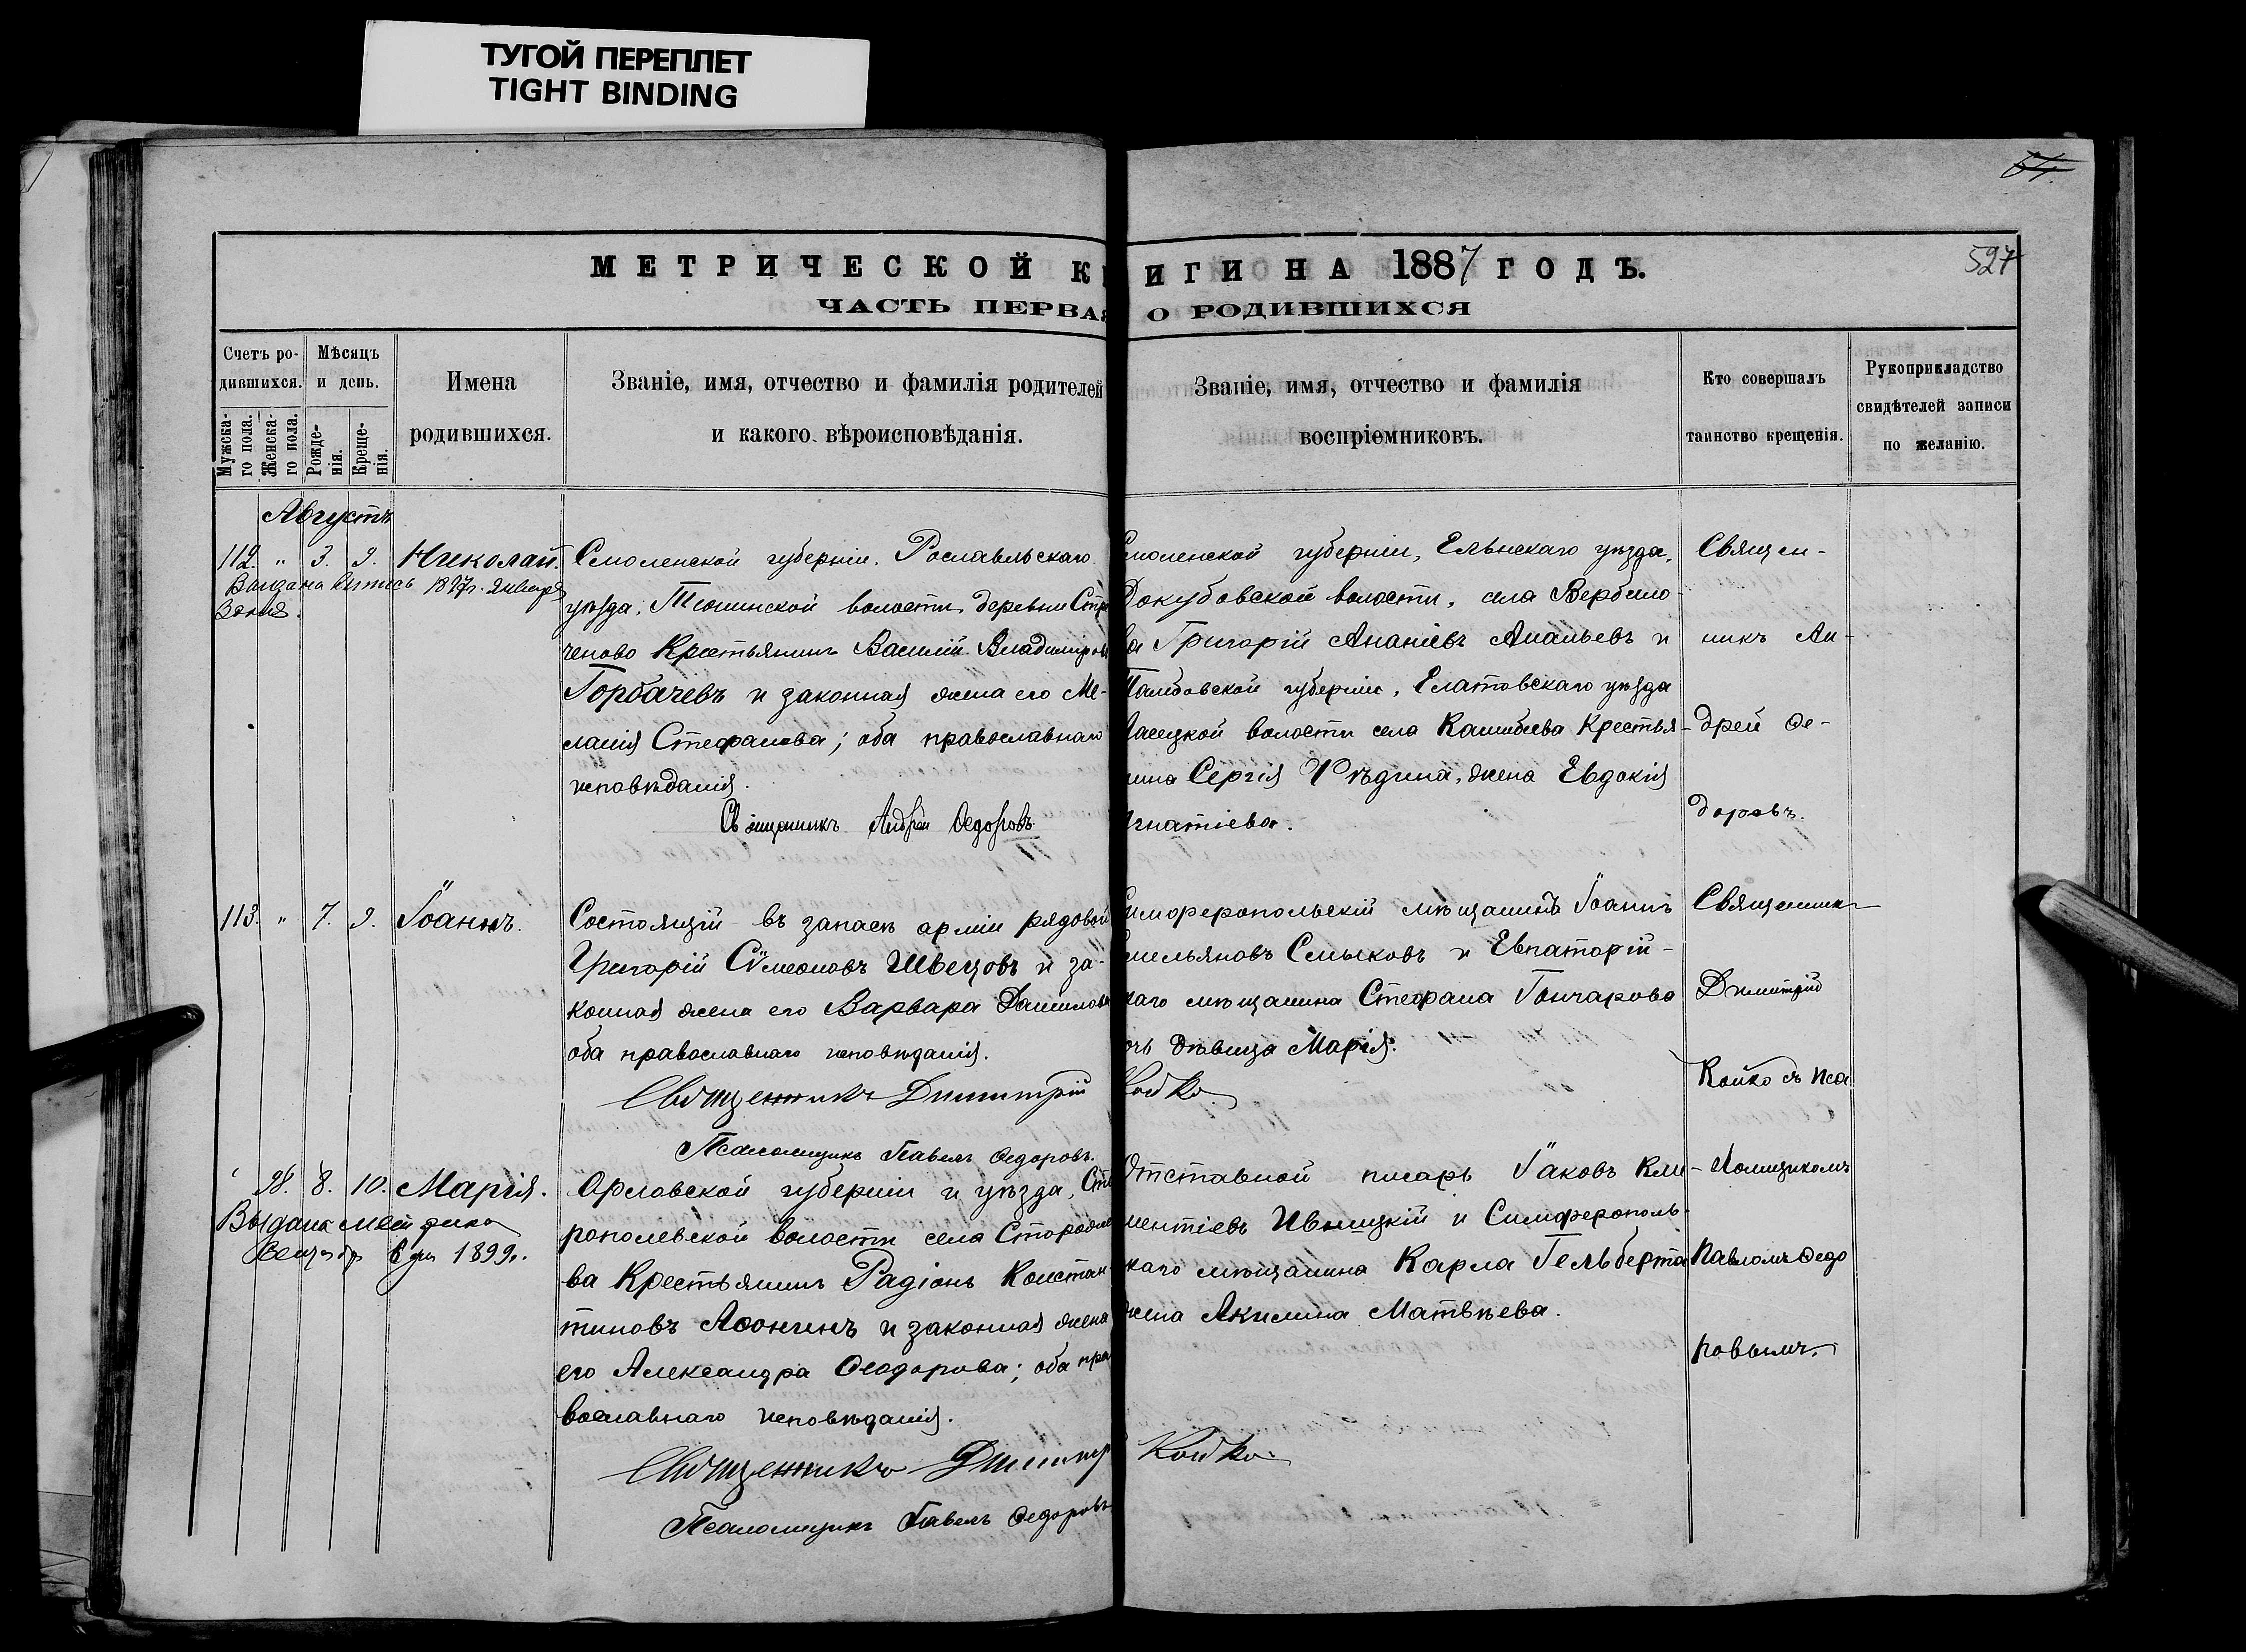 ТУГОЙ ПЕРЕПЛЕТ
TIGHT BINDING
54.
МЕТРИЧЕСКОЙ К ИГИ НА 1887 ГОДЪ.
527
ЧАСТЬ ПЕРВАЯ О РОДИВШИХСЯ
Счетъ ро-
дившихся.
Мужска-
го пола.
Женска-
го пола.
Мѣсяцъ
и день.
Рожде-
нія.
Креще-
нія.
Имена
родившихся.
Званіе, имя, отчество и фамилія родителей
и какого вѣроисповѣданія.
Званіе, имя, отчество и фамилія
воспріемниковъ.
Кто совершалъ
таинство крещенія.
Рукоприкладство
свидѣтелей записи
по желанію.
Августъ
112. " 3. 9. Николай.
Выдана выпись 1897г. Января
Смоленской губерніи, Рославльскаго
уѣзда, волости, деревни Стре
ченово Крестьянинъ Василій Владиміровъ
Горбачевъ и законная жена его Ме-
ланія Стефанова; оба православнаго
исповѣданія.
Священникъ Андрей Ѳедоровъ
Смоленской губерніи, Ельнскаго уѣзда,
Докубовской волости, села Вербило
ва Григорій Ананіевъ Ананьевъ и
Тамбовской губерніи, Елатовскаго уѣзда
волости села Кашибѣева Крестья-
нина Сергія жена Евдокія
Игнатіева.
Священ-
никъ Ан-
дрей Ѳе-
доровъ.
113. " 7. 9. Іоаннъ.
Состоящій въ запасѣ арміи рядовой
Григорій Сѵмеоновъ Швецовъ и за-
конная жена его Варвара Данилова
оба православнаго исповѣданія.
Священникъ Димитрій Койко
Псаломщикъ Павелъ Ѳедоровъ.
Симферопольскій мѣщанинъ Іоаннъ
Емельяновъ Смыковъ и Евпаторій-
скаго мѣщанина Стефана Гончарова
дочь дѣвица Марія.
Священникъ
Димитрій
Койко съ Пса
ломщикомъ
Павломъ Ѳедо
ровымъ.
98. 8. 10. Марія.
Выдана метрика
6 дня 1899г.
Орловской губерніи и уѣзда, Ста
рополевской волости села Стородне
ва Крестьянинъ Радіонъ Констан-
тиновъ Аѳонинъ и законная жена
его Александра Ѳеодорова; оба пра
вославнаго исповѣданія.
Священникъ Димитр Койко
Псаломщикъ Павелъ Ѳедоровъ
Отставной писарь Іаковъ Кли-
ментіевъ Ивницкій и Симферополь-
скаго мѣщанина Карла Гельберта
жена Акилина Матвѣева.